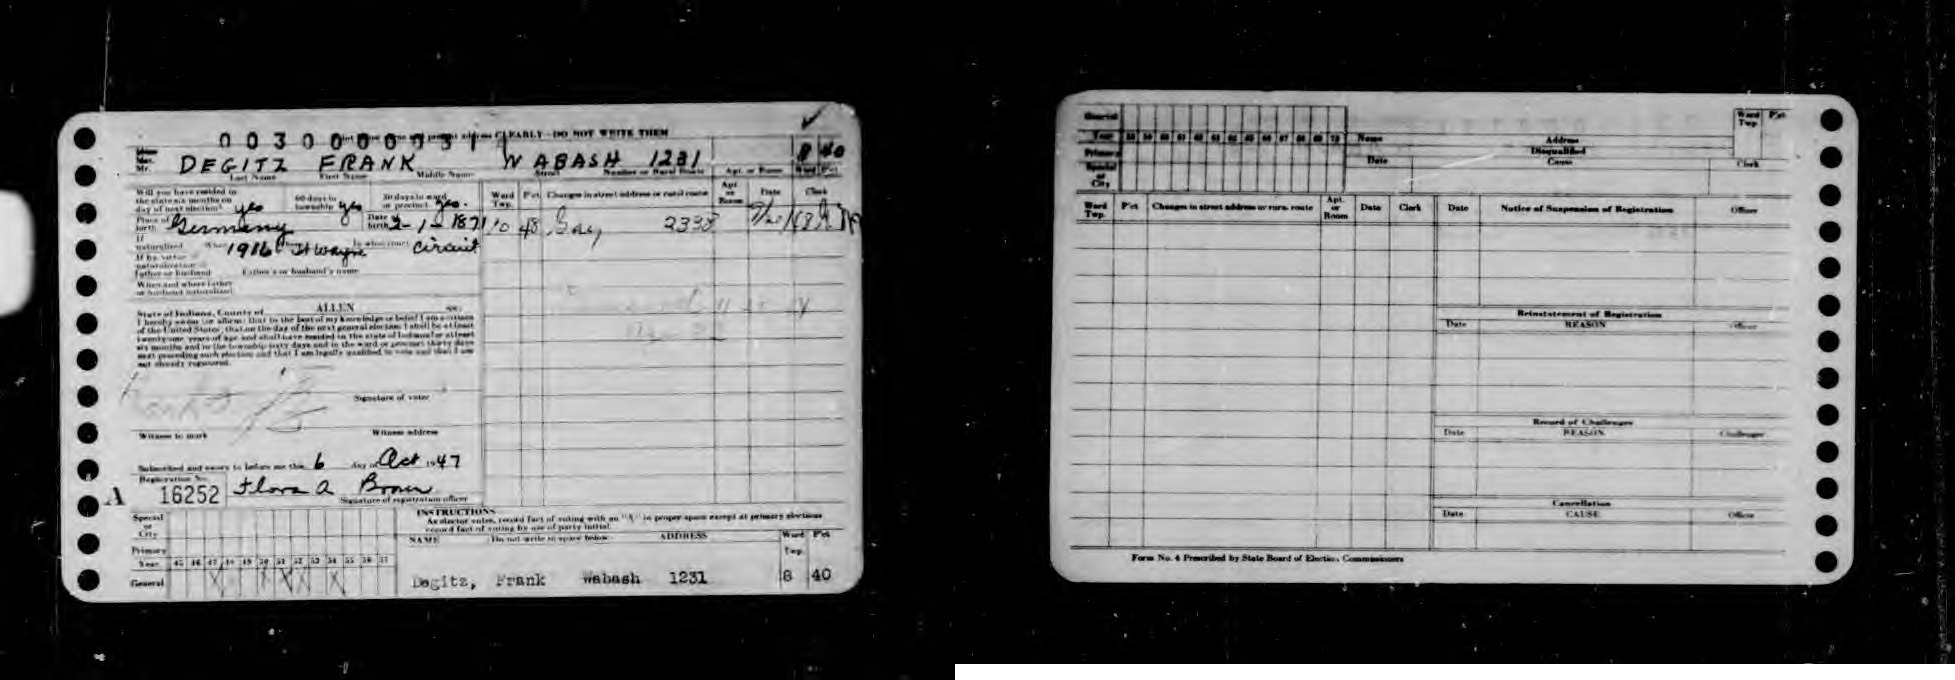 0030000031
CLEARLY—DO NOT WRITE THEM
Mrs.
Mr. DEGITZ FRANK WABASH 1231 8 40
Last Name First Name Middle Name Street Number or Rural Route Apt. or Room Ward Pct
Will you have resided in the state six months on day of next election? yes 60 days in township yes 30 days in ward or precinct yes.
Ward Twp. Pct Changes in street address or rural route Apt. or Room Date Clerk
Place of birth Germany Date birth 2-1-1871
10 48 2338
If naturalized When 1916 Where Ft Wayne In what court Circuit
If by virtue of naturalization of Father or husband Father's or husband's name
When and where Father or husband naturalized
State of Indiana, County of ALLEN ss:
I hereby swear (or affirm) that to the best of my knowledge or belief I am a citizen
of the United States, that on the day of the next general election I shall be at least
twenty-one years of age and shall have resided in the state of Indiana for at least
six months and in the township sixty days and in the ward or precinct thirty days
next preceding such election and that I am legally qualified to vote and that I am
not already registered.
Signature of voter
Witness to mark Witness address
Subscribed and sworn to before me this 6 day of Oct 1947
Registration No.
A 16252 Flora A
Signature of registration officer
INSTRUCTIONS
As elector votes, record fact of voting with an "X" in proper space except at primary elections
record fact of voting by use of party initial.
Special or City
Primary
Year 45 46 47 48 49 50 51 52 53 54 55 56 57
General X X X X
NAME Do not write in space below ADDRESS Ward Twp. Pct
Degitz, Frank Wabash 1231 8 40
General
Year 58 59 60 61 62 63 64 65 66 67 68 69 70
Primary
Special or City
Name Address Ward Twp. Pct
Disqualified
Date Cause Clerk
Ward Twp. Pct Changes in street address or rural route Apt. or Room Date Clerk
Date Notice of Suspension of Registration Officer
Reinstatement of Registration
Date REASON Officer
Record of Challenges
Date REASON Challenger
Cancellation
Date CAUSE Officer
Form No. 4 Prescribed by State Board of Election Commissioners